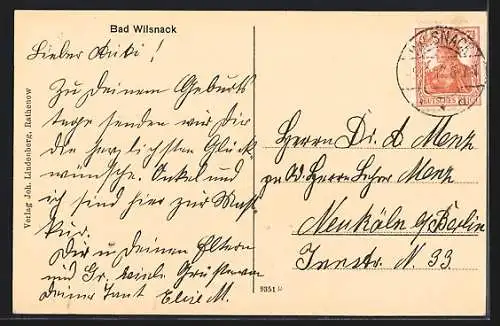 Bad Wilsnack
Lieber Kuki!
Zu Deinem Geburts
tage senden wir Dir
die herzlichsten Glück-
wünsche. Onkel und
ich sind hier zur Mast
kur.
Dir u Deinen Eltern
und Gr. viele Grüße von
Deiner Tant Elise M.
Verlag Joh. Lindenberg, Rathenow
9351
WILSNACK
DEUTSCHES REICH
Herrn Dr. A Menz
Herrn Lehrer Menz
Neuköln b/Berlin
Innstr. N. 33